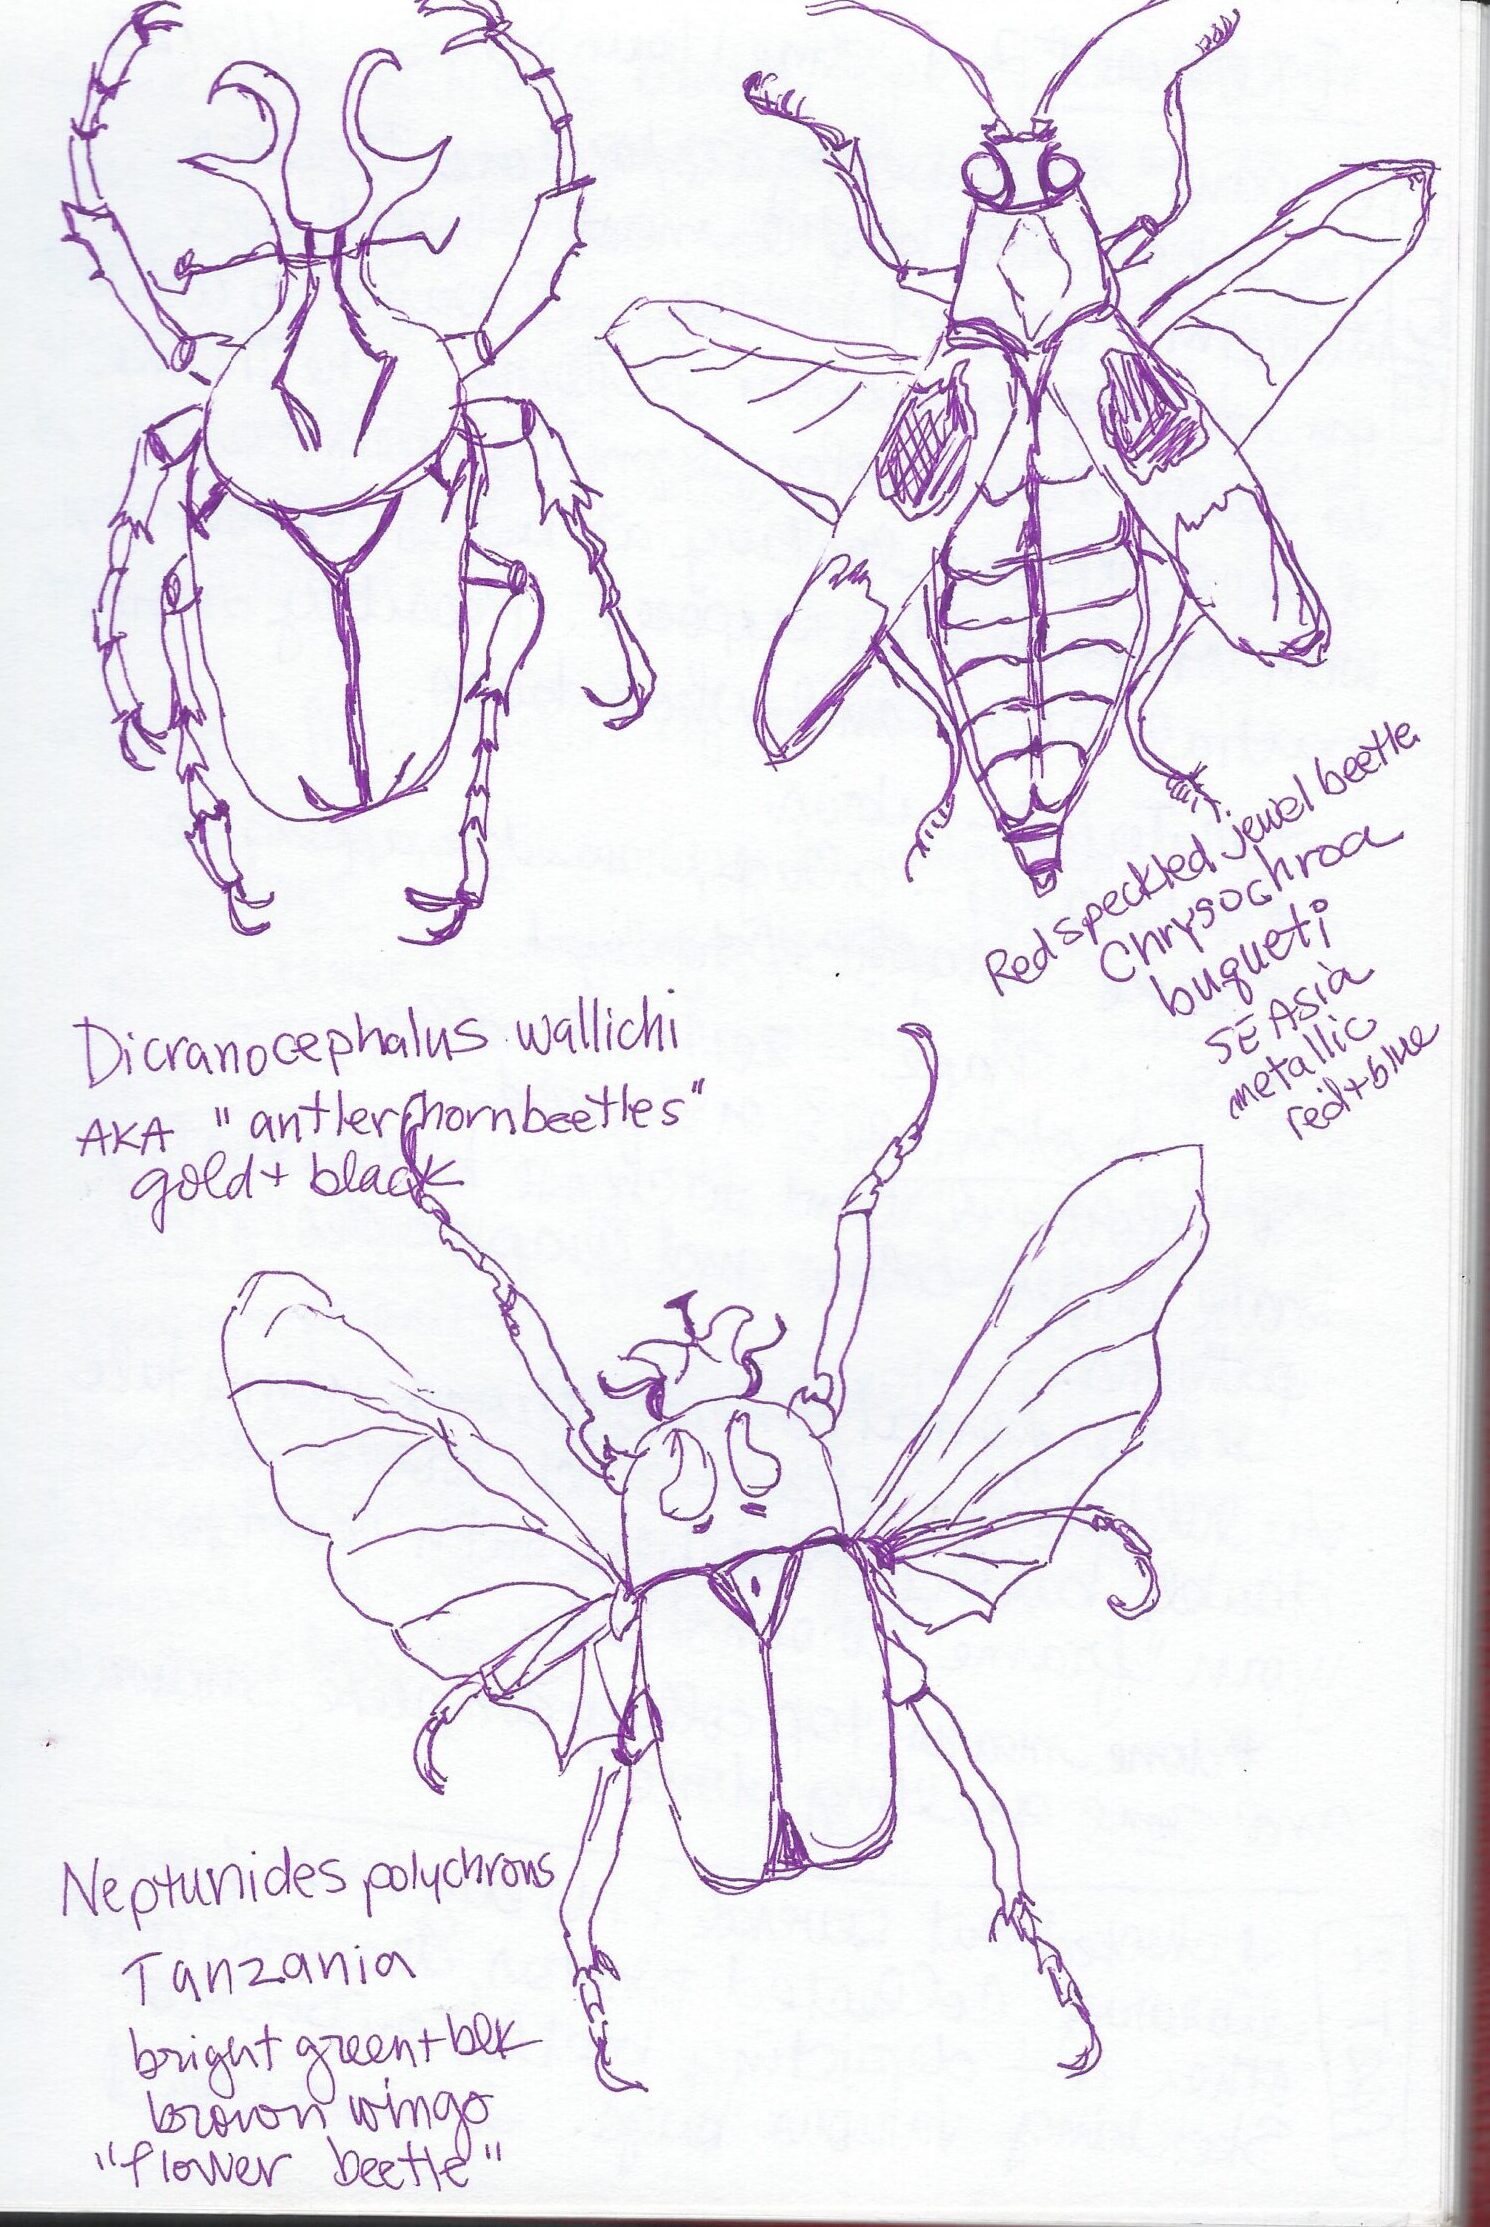 Red speckled jewel beetle
Chrysochroa
buqueti
SE Asia
metallic
red+blue
Dicranocephalus wallichi
AKA "antler hornbeetles"
gold + black
Neptunides polychrous
Tanzania
bright green+blk
brown wings
"flower beetle"